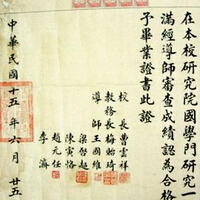 在本校研究院國學門研究一
滿經導師審查成績認為合格
予畢業證書此證
校長曹雲祥
教務長梅貽琦
導師王國維
梁啟超
陳寅恪
趙元任
李濟
中華民國十五年六月廿五